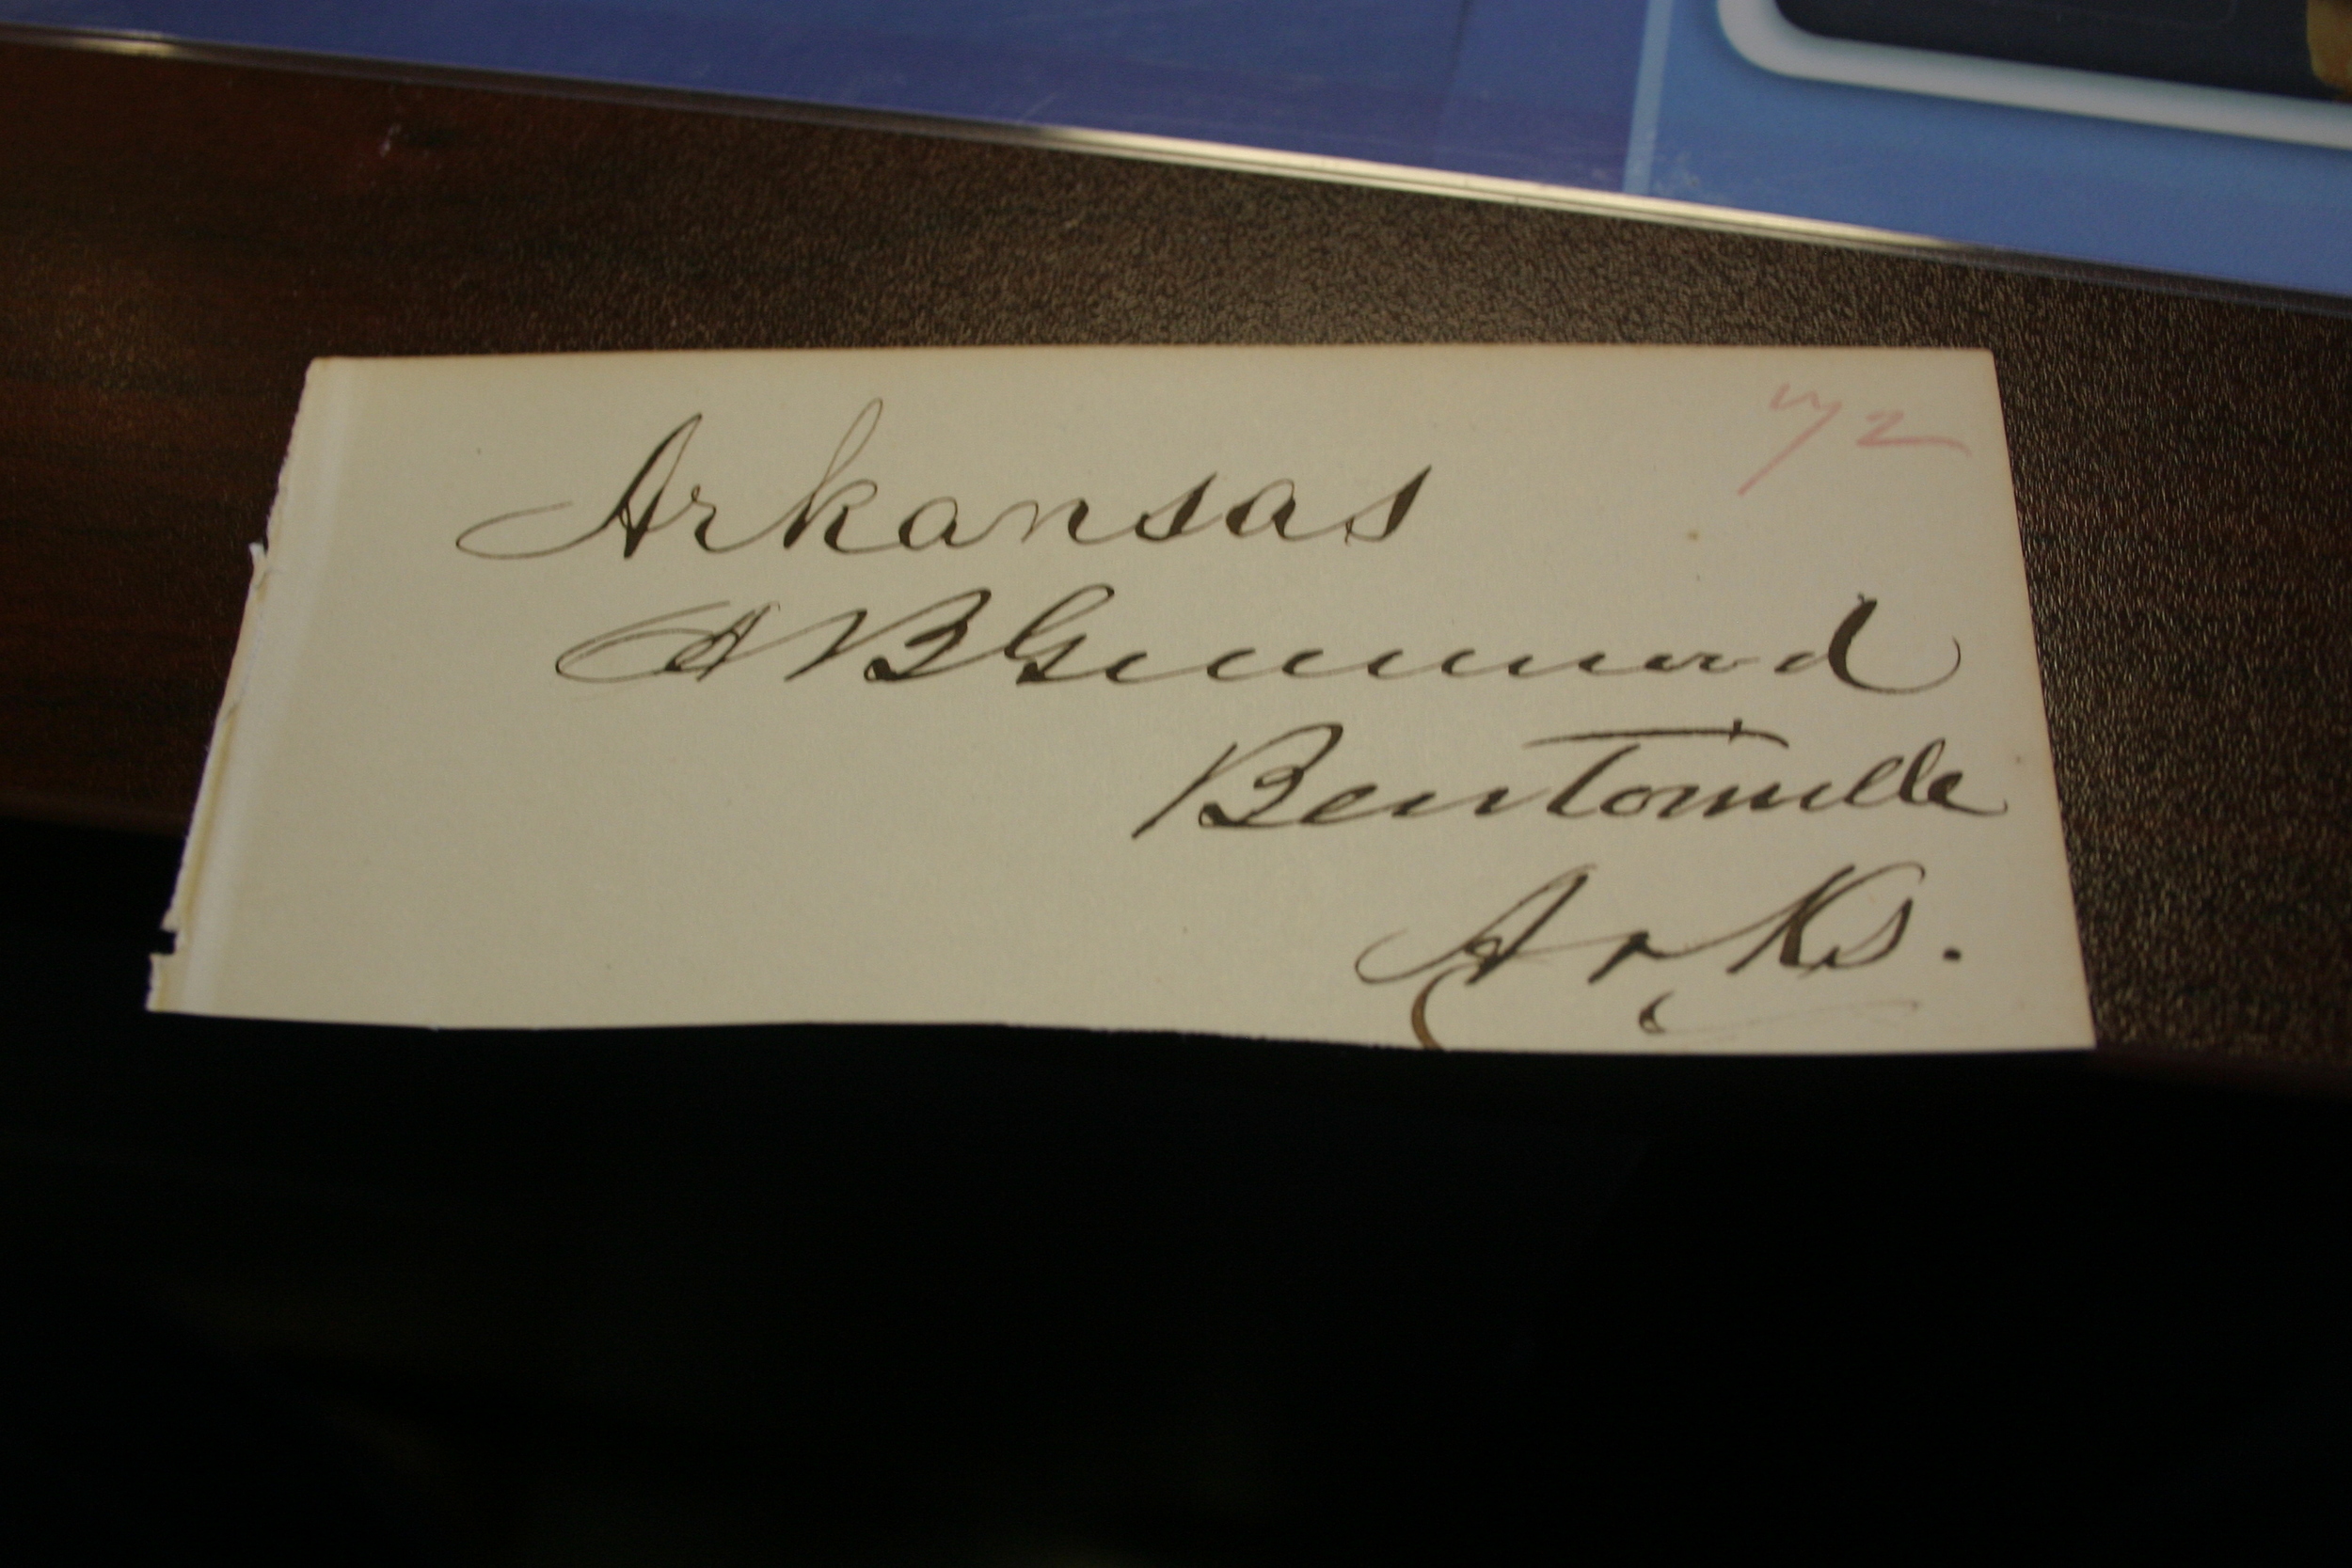 Arkansas
A B Greenwood
Bentonville
Arks.